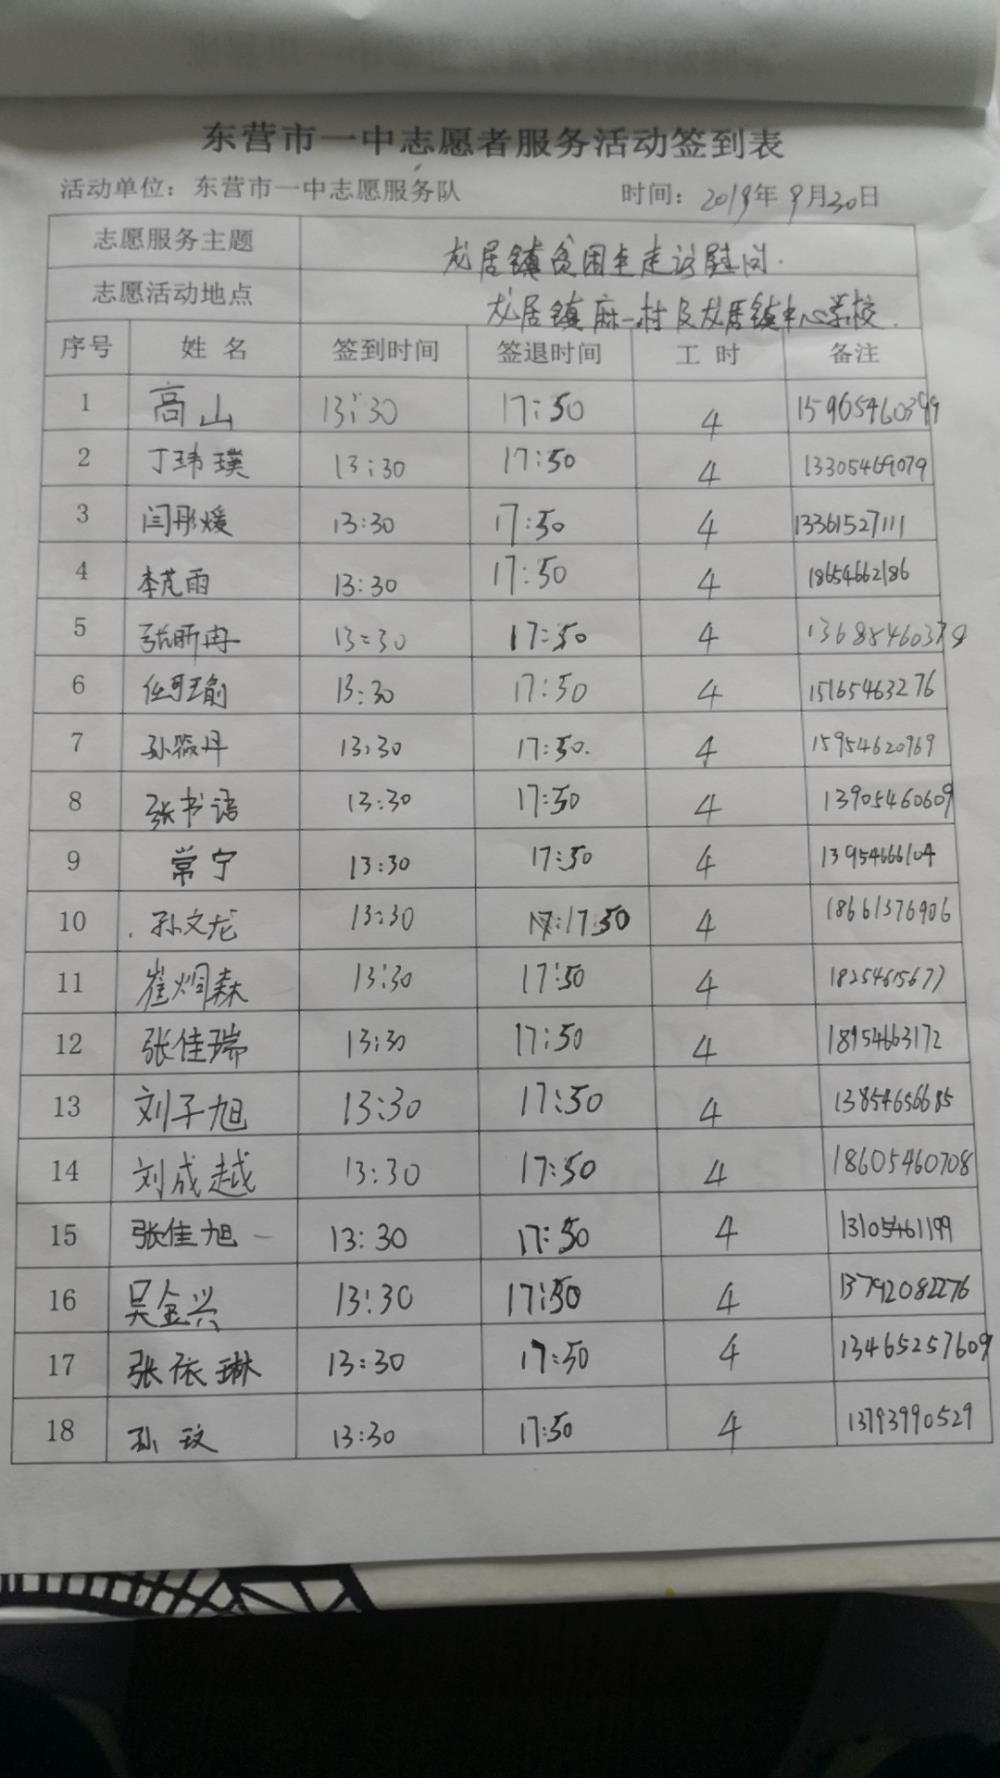 东营市一中志愿者服务活动签到表
活动单位：东营市一中志愿服务队 时间：2019年9月30日
志愿服务主题 龙居镇贫困生走访慰问.
志愿活动地点 龙居镇麻一村及龙居镇中心学校.
序号 姓 名 签到时间 签退时间 工 时 备注
1 高山 13:30 17:50 4 15965460399
2 丁玮璞 13:30 17:50 4 13305469079
3 闫彤媛 13:30 17:50 4 13361527111
4 李芃雨 13:30 17:50 4 18654662186
5 张昕冉 13:30 17:50 4 13685460378
6 任可瑜 13:30 17:50 4 15165463276
7 孙筱丹 13:30 17:50. 4 15954620969
8 张书语 13:30 17:50 4 13905460609
9 常宁 13:30 17:50 4 13954666104
10 孙文龙 13:30 17:50 4 18661376906
11 崔炯森 13:30 17:50 4 18254615677
12 张佳瑞 13:30 17:50 4 18954663172
13 刘子旭 13:30 17:50 4 13854656685
14 刘成越 13:30 17:50 4 18605460708
15 张佳旭 13:30 17:50 4 13105461199
16 吴金兴 13:30 17:50 4 13792082276
17 张依琳 13:30 17:50 4 13465257609
18 孙玟 13:30 17:50 4 13793990529